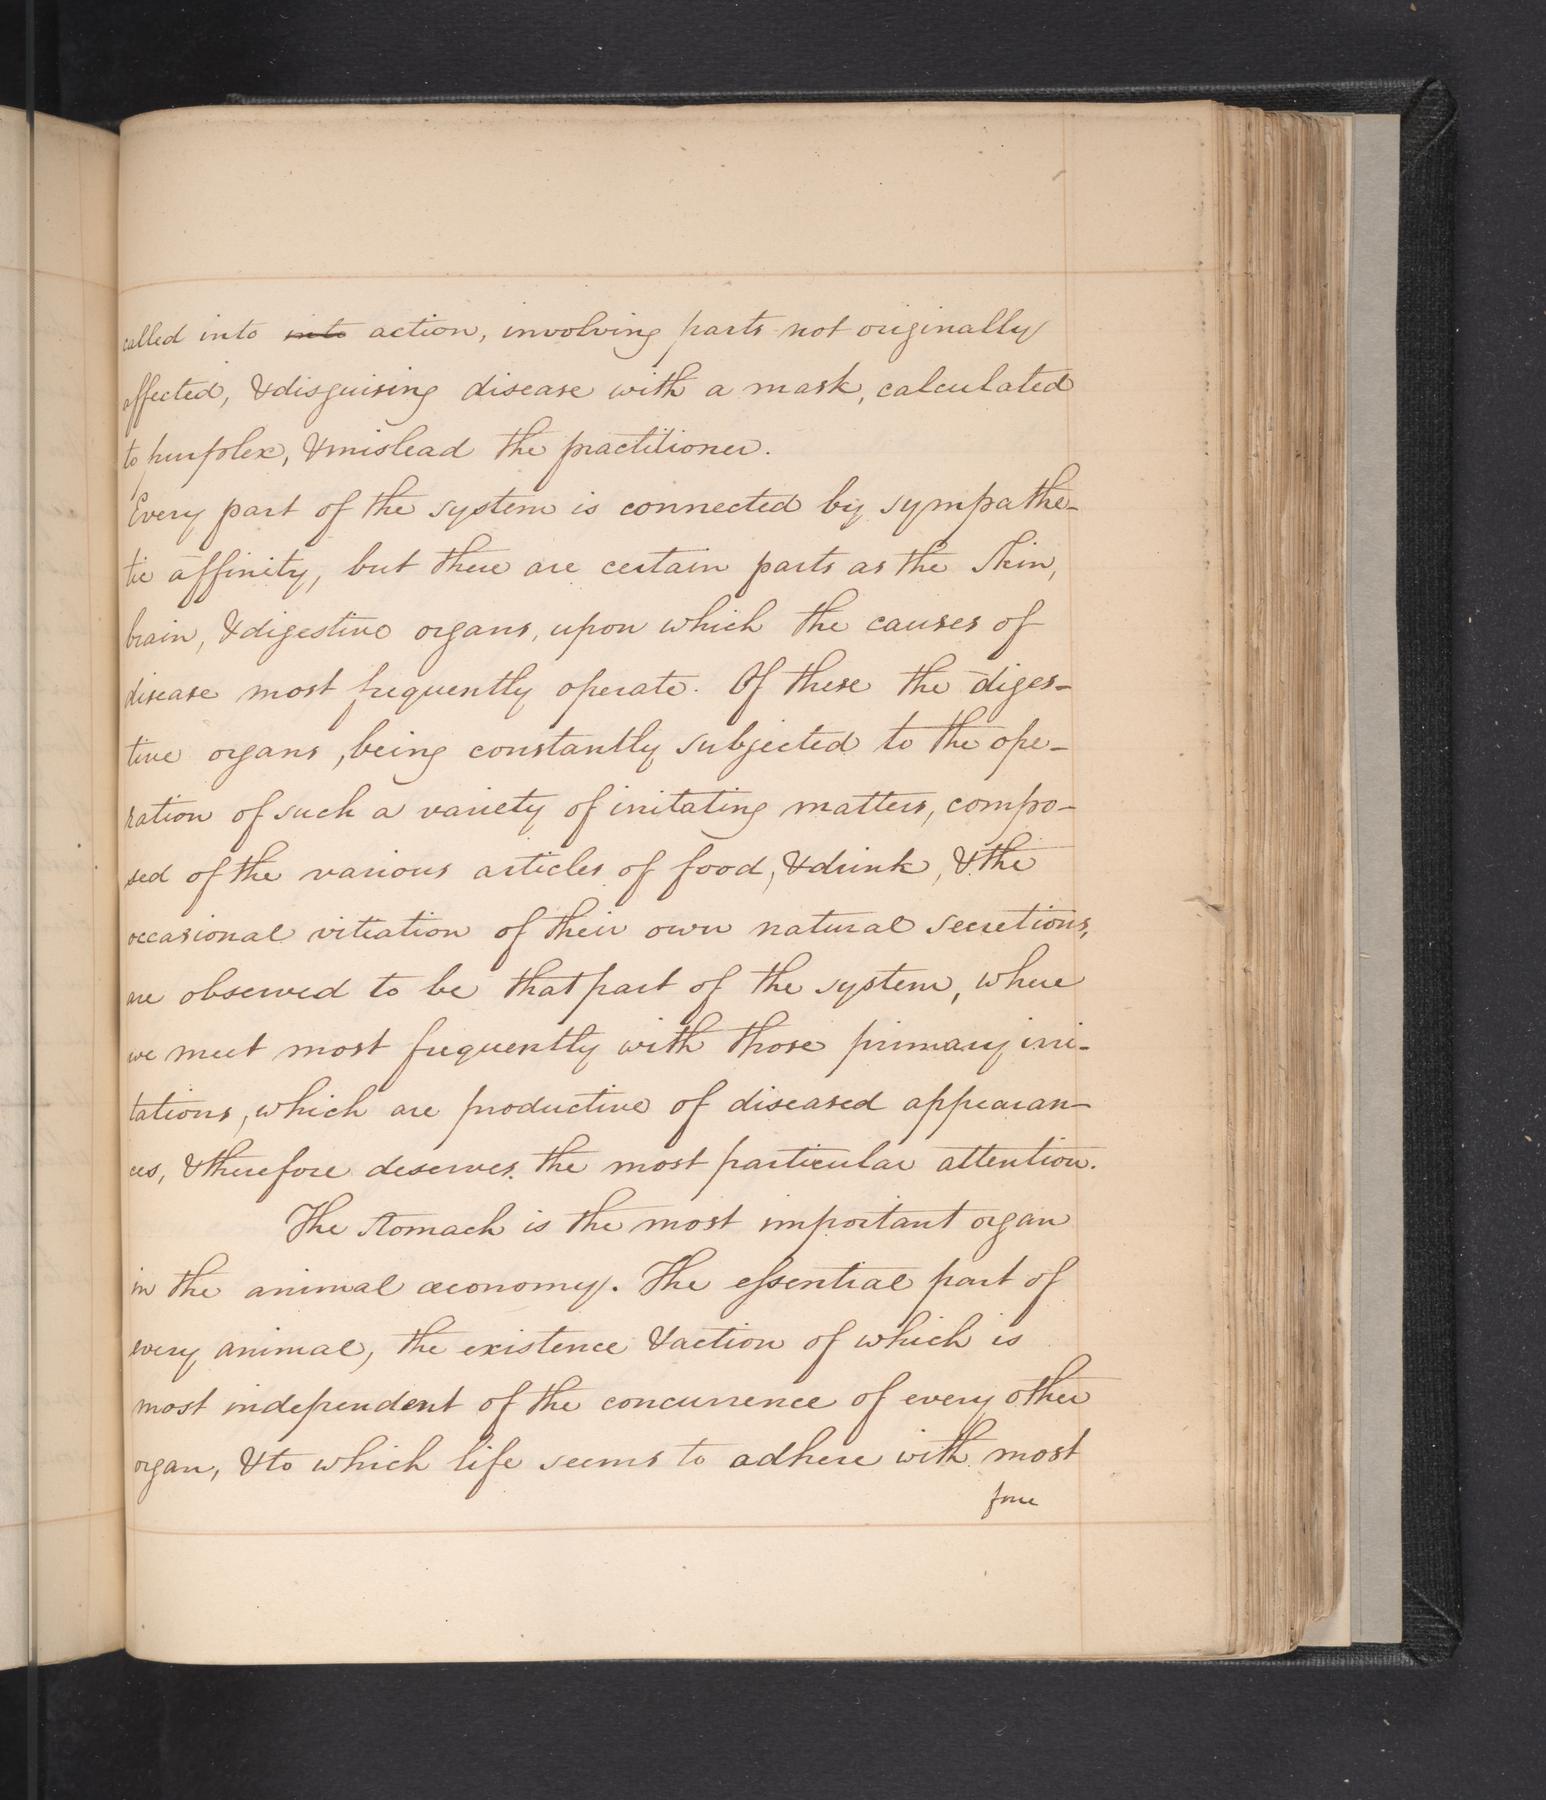 called into into action, involving parts not originally
affected, & disguising disease with a mask, calculated
to purplex, & mislead the practitioner.
Every part of the system is connected by sympathe-
tic affinity, but there are certain parts as the Skin,
brain, & digestive organs, upon which the causes of
disease most frequently operate. Of these the diges-
tive organs, being constantly subjected to the ope-
ration of such a variety of irritating matters, compo-
sed of the various articles of food, & drink, & the
occasional vitiation of their own natural secretions,
are observed to be that part of the system, where
we meet most frequently with those primary irri-
tations, which are productive of diseased appearan-
ces, & therefore deserves the most particular attention.
The Stomach is the most important organ
in the animal œconomy. The essential part of
every animal, the existence & action of which is
most independent of the concurrence of every other
organ, & to which life seems to adhere with most
force